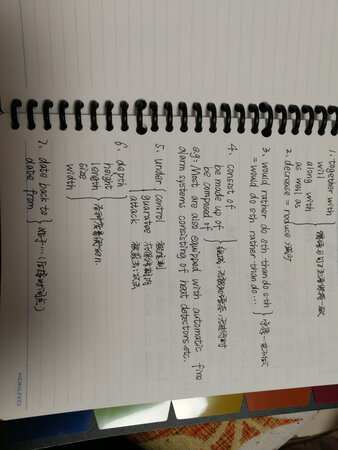 1. together with
will
along with
as well as
2. decrease = reduce 减少
3. would rather do sth than do sth
= would do sth rather than do...
宁愿…也不…
4. consist of
be made up of
be composed of
eg: Most are also equipped with automatic fire
alarm systems consisting of heat detectors.etc.
5. under control 被控制
guarantee 在保修期内
attack
6. depth
height
length
size
width
7. date back to
date from
始于…(后接时间点)
KOKUYO